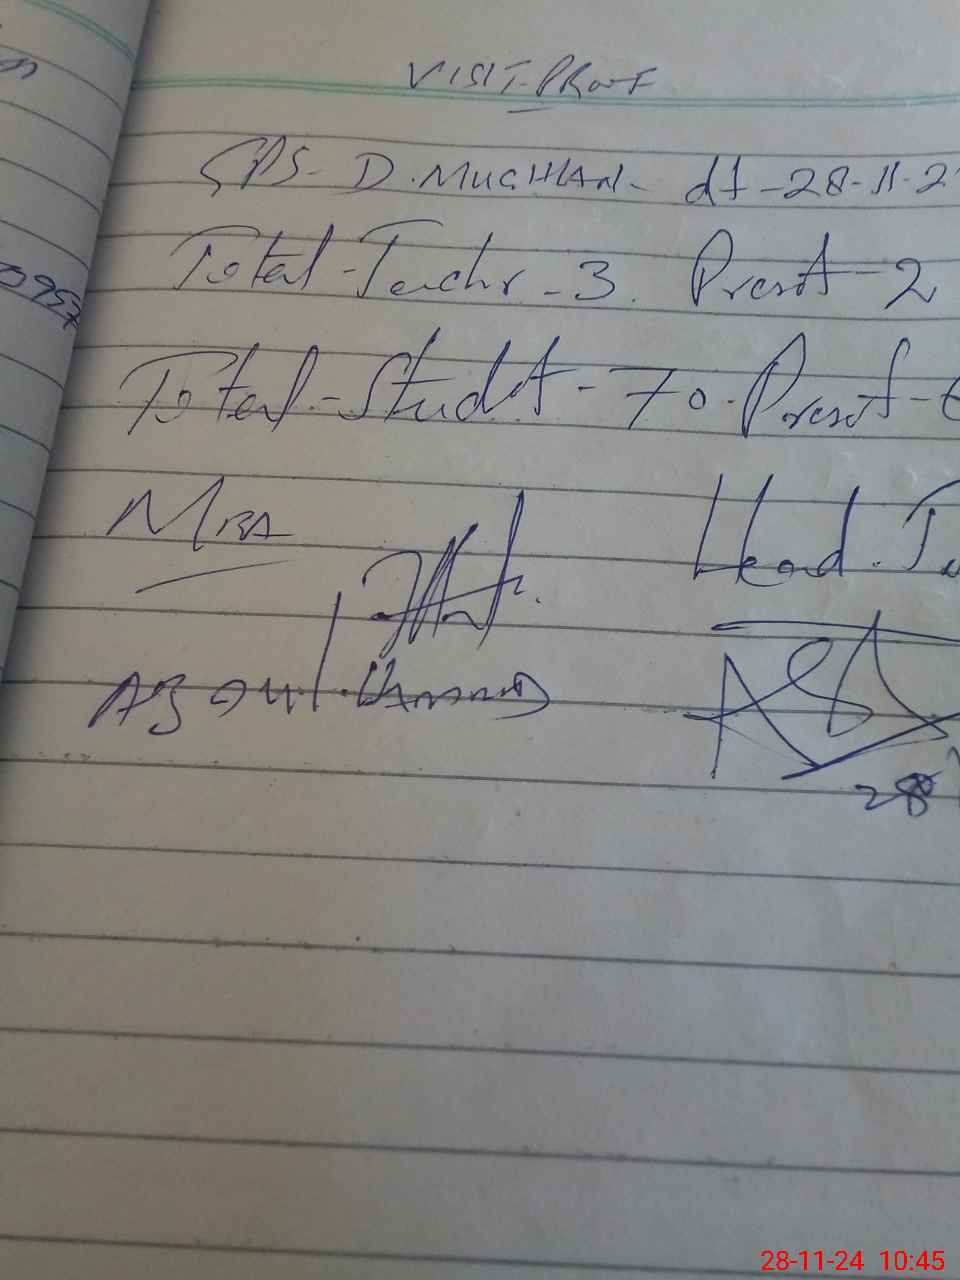 VISIT-PROOF
GPS- D. MUGHLAN- dt-28-11-2
Total-Teachr-3. Presnt-2
Total-Studnt-70. Presnt-6
MBA
Head. Te
28
28-11-24 10:45